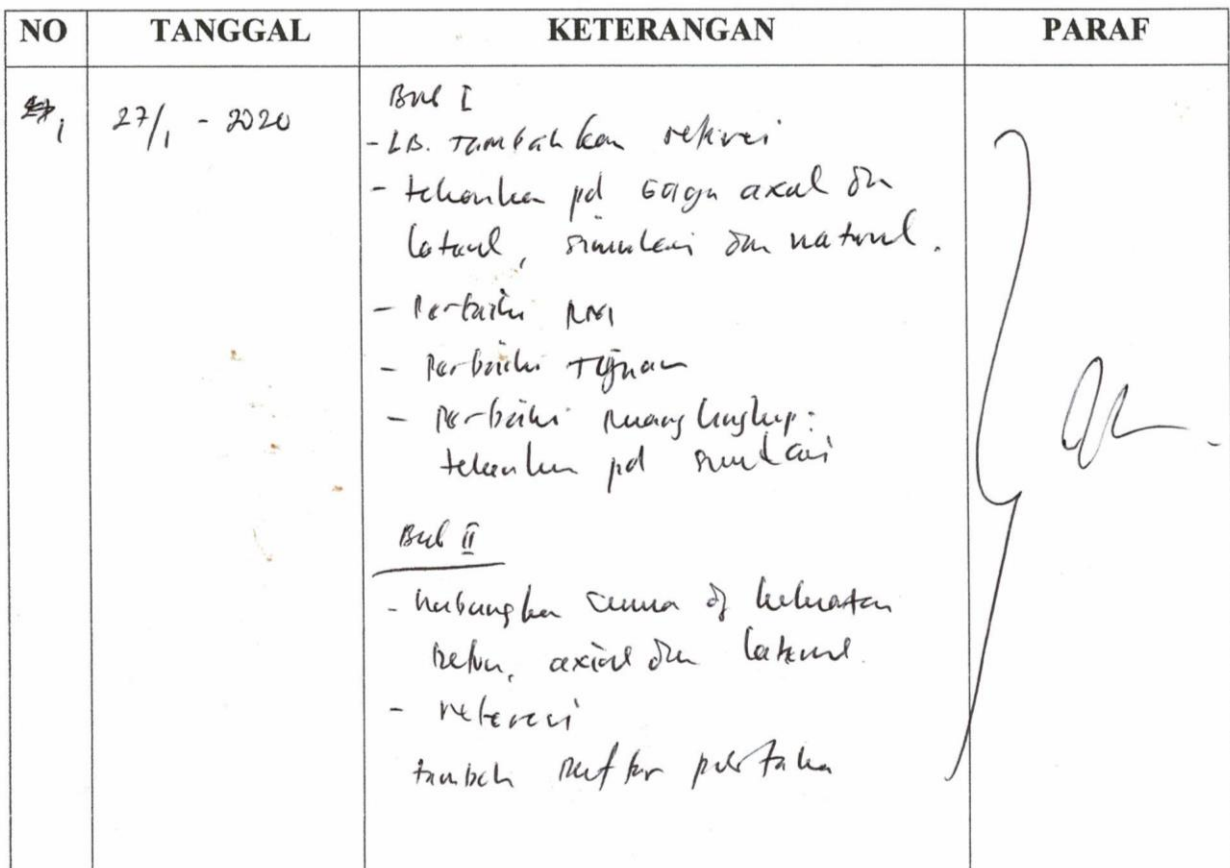 NO TANGGAL KETERANGAN PARAF
1 27/1 - 2020
Bab I
- LB. Tambahkan referensi
- tekankan pd gaya axial dn
lateral, simulasi dn natural.
- Perbaiki
- Perbaiki Tujuan
- Perbaiki Ruang lingkup:
tekankan pd simulasi
Bab II
- hubungkan semua dg kekuatan
beton, axial dn lateral.
- referensi
tambah daftar pustaka